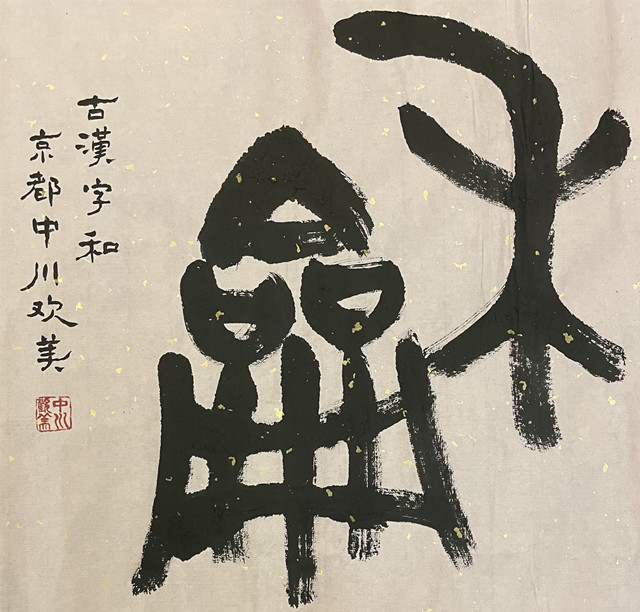 龢
古漢字和
京都中川欢美
中川
歡美